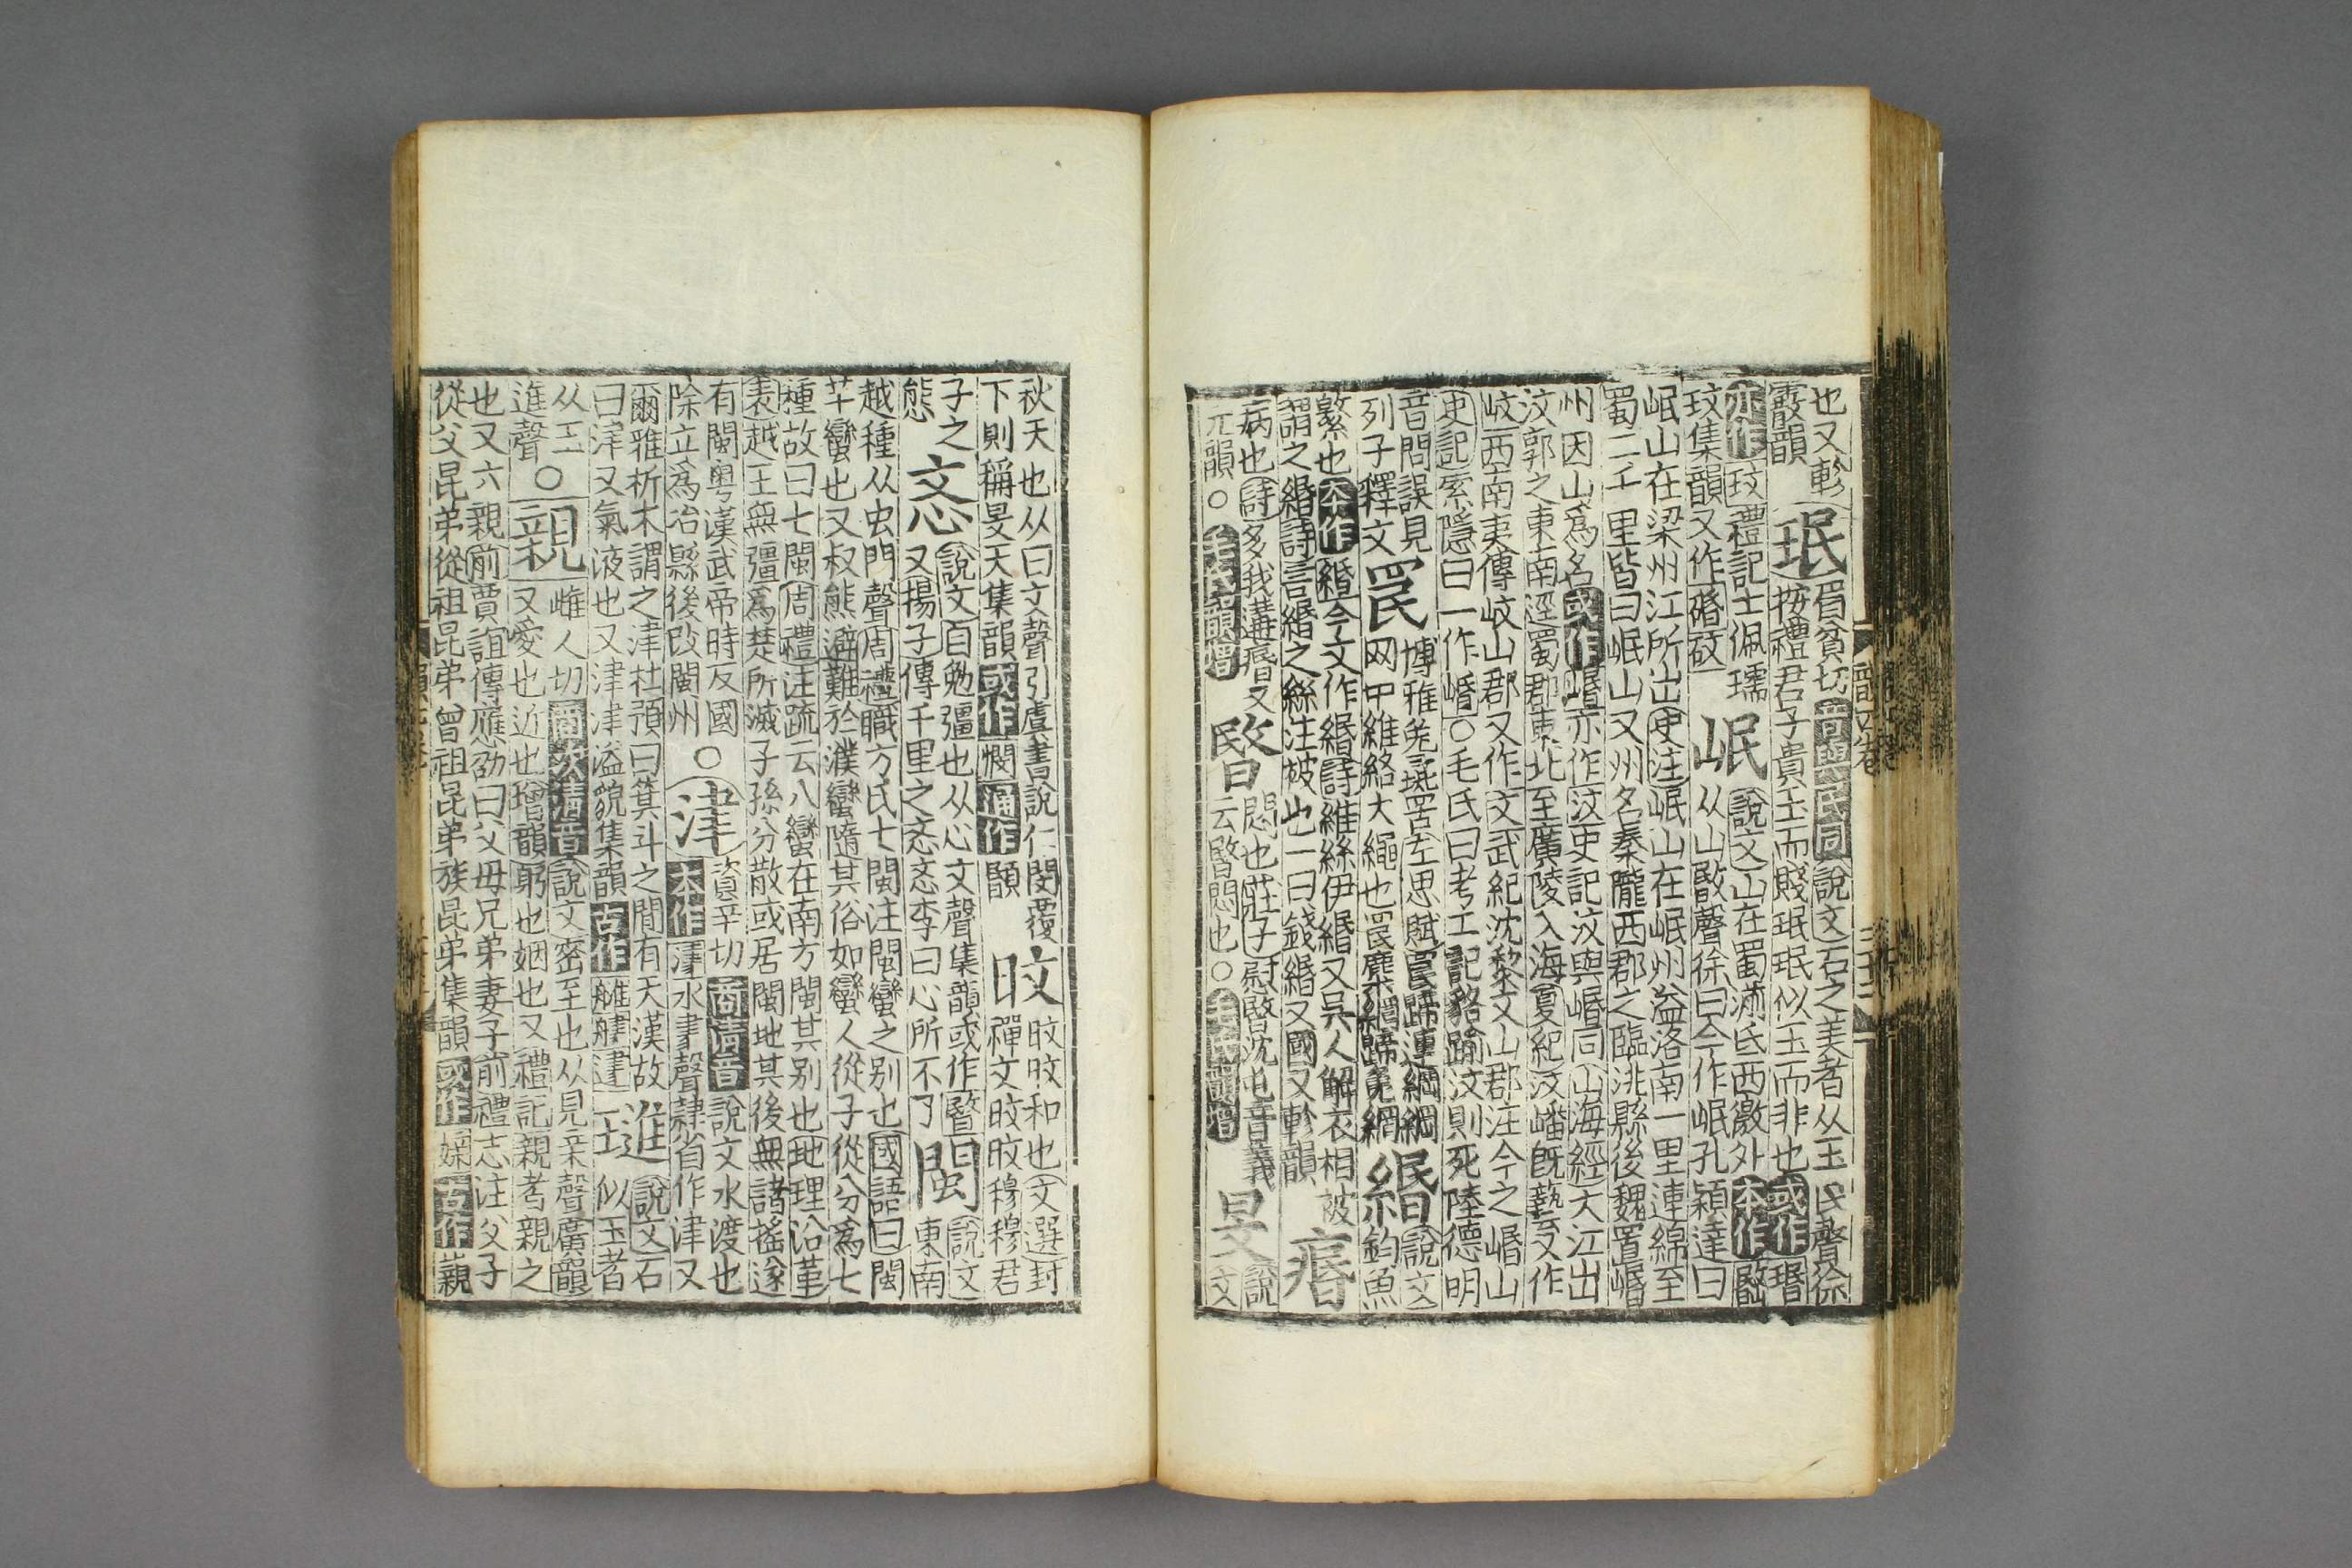 也又軫
霰韻
珉
眉貧切音與民同說文石之美者从玉民聲徐
按禮君子貴玉而賤珉珉似玉而非也或作瑉
亦作玟禮記士佩瓀
玟集韻又作碈砇
岷
說文山在蜀湔氐西徼外本作
从山敃聲徐曰今作岷孔穎達曰
岷山在梁州江所出史注岷山在岷州溢洛南一里連綿至
蜀二千里皆曰岷山又州名秦隴西郡之臨洮縣後魏置崏
州因山爲名或作崏亦作汶史記汶與崏同山海經大江出
汶郭之東南逕蜀郡東北至廣陵入海夏紀汶嶓旣藝又作
岐西南夷傳岐山郡又作文武紀沈黎文山郡注今之崏山
史記索隱曰一作崏○毛氏曰考工記貉踰汶則死陸德明
音問誤見
列子釋文
罠
博雅兔罟左思賦罠蹏連綱綱
网中維絡大繩也罠麋網蹏兔網
緡
說文
釣魚
繁也本作緡今文作緡詩維絲伊緡緡又吳人解衣相被
謂之緡詩言緡之絲注被也一曰錢緡又國又軫韻
痻
病也詩多我遘痻又
元韻○毛氏韻增
暋
悶也莊子慰暋沈屯音義
云暋悶也○毛氏韻增
旻
說
文
秋天也从日文聲引虞書說仁閔覆
下則稱旻天集韻或作憫通作
旼
旼旼和也文選封
禪文旼旼穆穆君
子之
態
忞
說文自勉彊也从心文聲集韻或作暋
又揚子傳千里之忞忞李曰心所不了
閩
說文
東南
越種从虫門聲周禮職方氏七閩注閩蠻之別也國語曰閩
芊蠻也又叔熊避難於濮蠻隨其俗如蠻人從子從分爲七
種故曰七閩周禮注疏云八蠻在南方閩其別也地理沿革
表越王無彊爲楚所滅子孫分散或居閩地其後無諸搖遂
有閩粤漢武帝時反國
除立爲冶縣後改閩州
○
津
資辛切商清音說文水渡也
本作水聲隷省作津又
爾雅析木謂之津杜預曰箕斗之間有天漢故
曰津又氣液也又津津溢貌集韻古作
璡
說文石
似玉者
从玉
進聲
○
親
雌人切商次清音說文密至也从見亲聲廣韻
又愛也近也增韻躬也姻也又禮記親者親之
也又六親前賈誼傳應劭曰父母兄弟妻子前禮志注父子
從父昆弟從祖昆弟曾祖昆弟族昆弟集韻或作媇古作